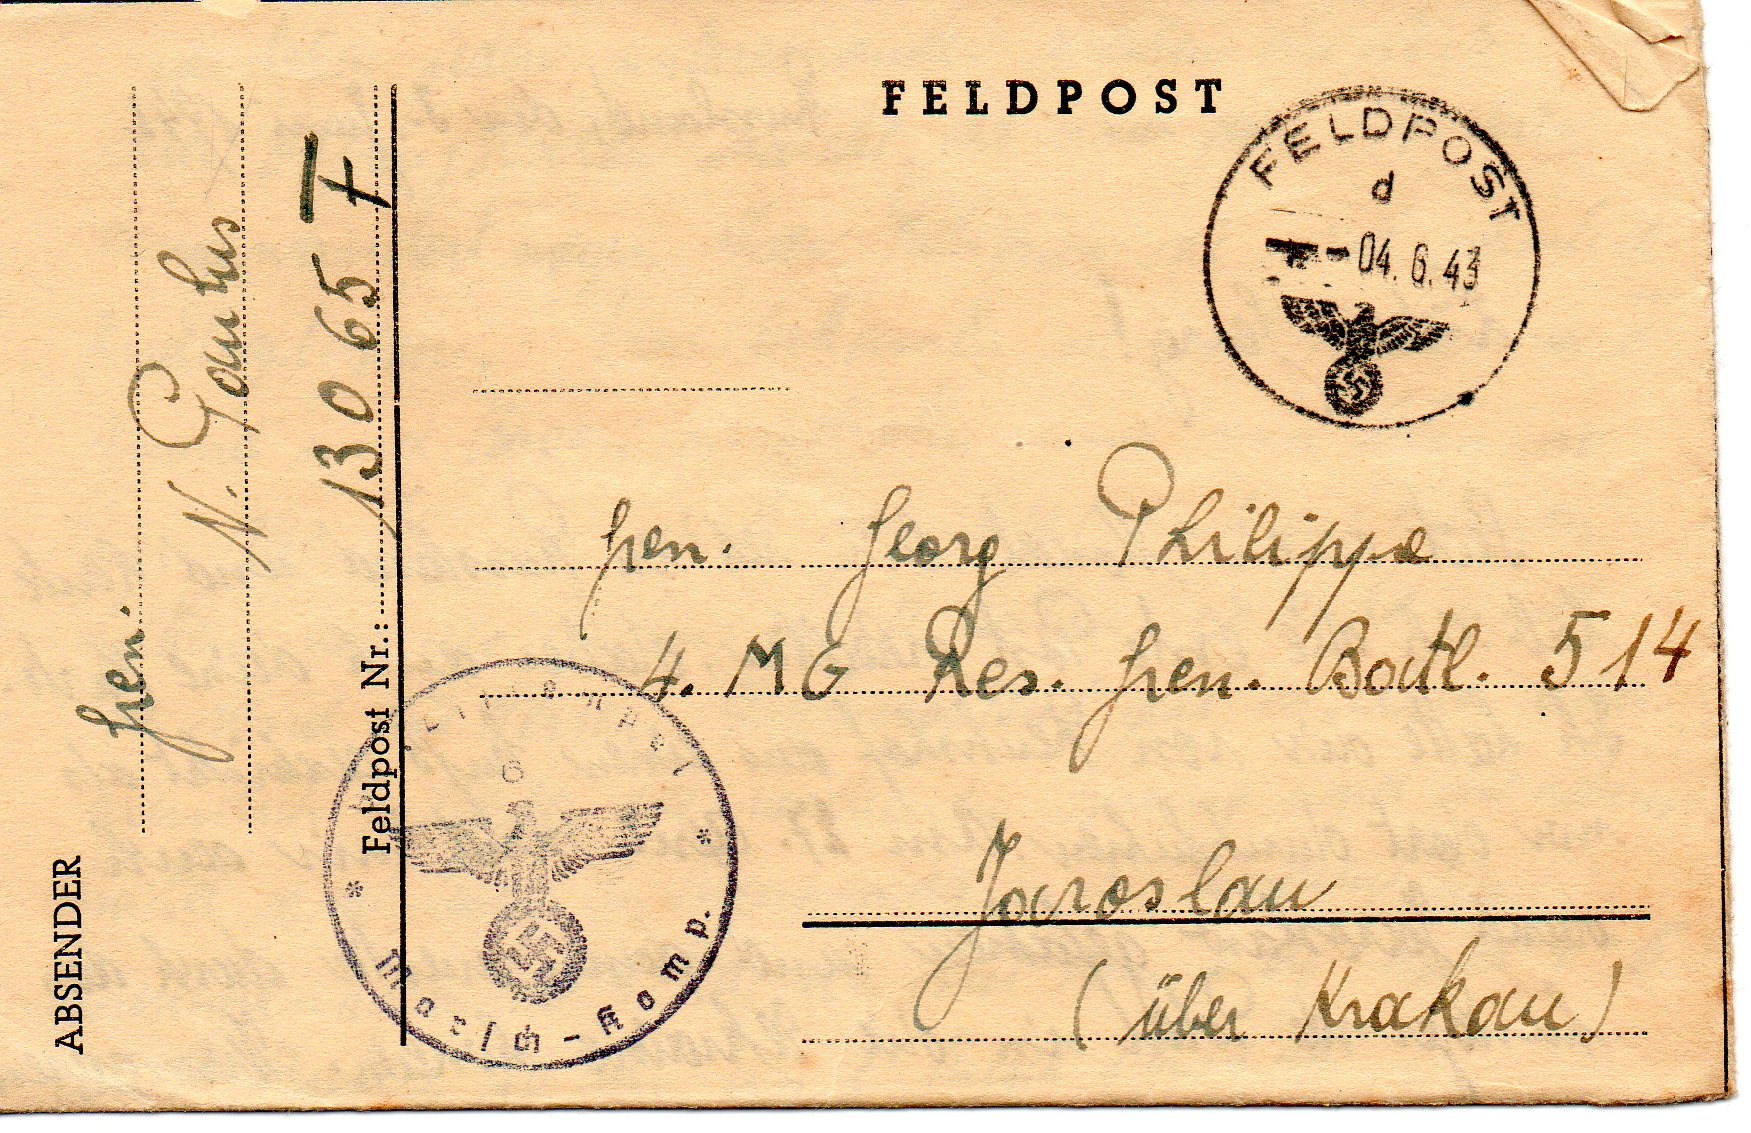 FELDPOST
FELDPOST
d
-04.6.43
Gren. Georg Philippe
4. MG Res. Gren. Batl. 514
Jaroslau
(über Krakau)
ABSENDER
Gren.
N.
Feldpost Nr.: 13065 F
Marsch-Komp.